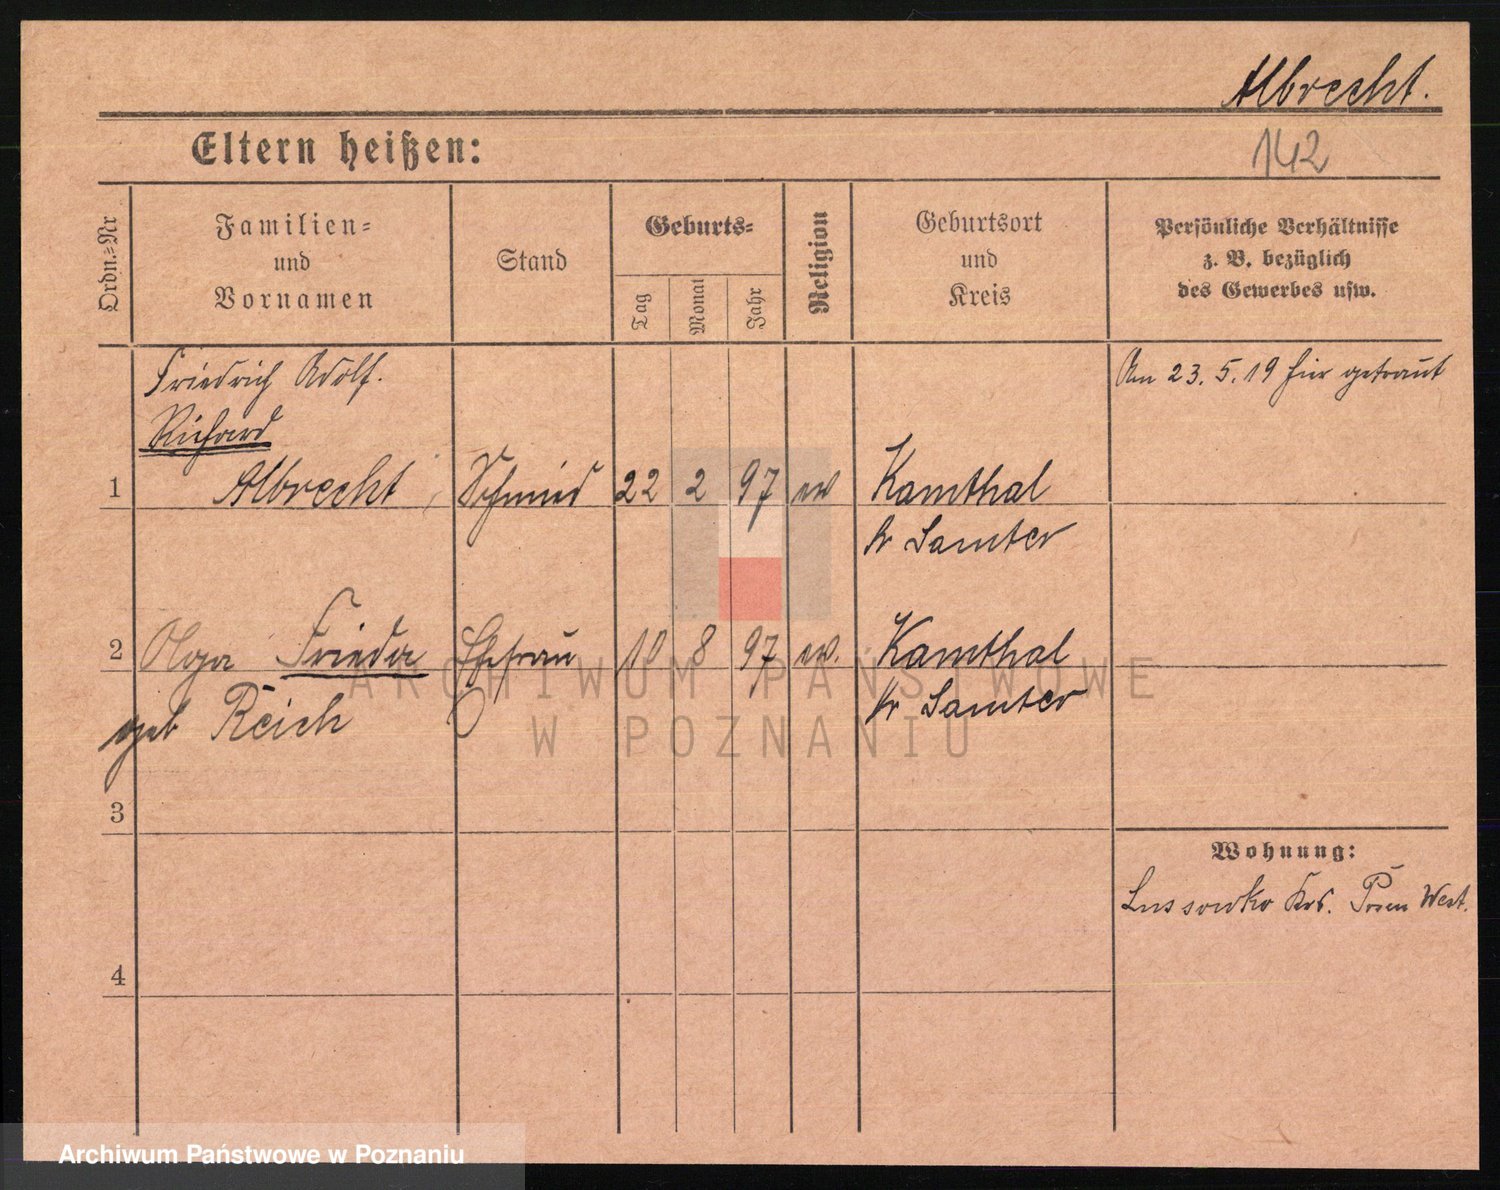 Albrecht.
Eltern heißen:
142
Ordn.=Nr
Familien=
und
Vornamen
Stand
Geburts=
Tag
Monat
Jahr
Religion
Geburtsort
und
Kreis
Persönliche Verhältnisse
z. B. bezüglich
des Gewerbes usw.
Friedrich Adolf.
Richard
1 Albrecht, Schmied 22 2 97 ev Kamthal
Kr Samter
Am 23. 5. 19 hier getraut
2 Olga Frieda Ehefrau 10 8 97 ev. Kamthal
geb Reich
Kr Samter
3
Wohnung:
Lussowko Krs. Posen West.
4
ARCHIWUM PAŃSTWOWE
W POZNANIU
Archiwum Państwowe w Poznaniu